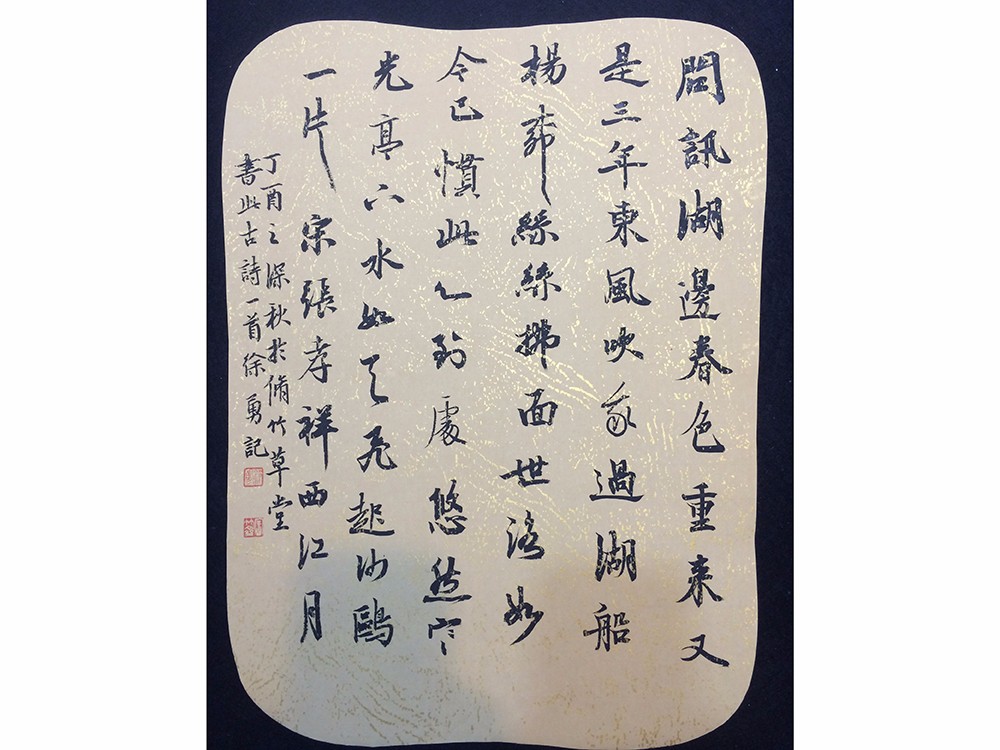 問訊湖邊春色重来又
是三年東風吹我過湖船
楊柳絲絲拂面世路如
今已慣此心到處悠然寒
光亭下水如天飛起沙鷗
一片 宋張孝祥西江月
丁酉之深秋於脩竹草堂
書此古詩一首徐勇記